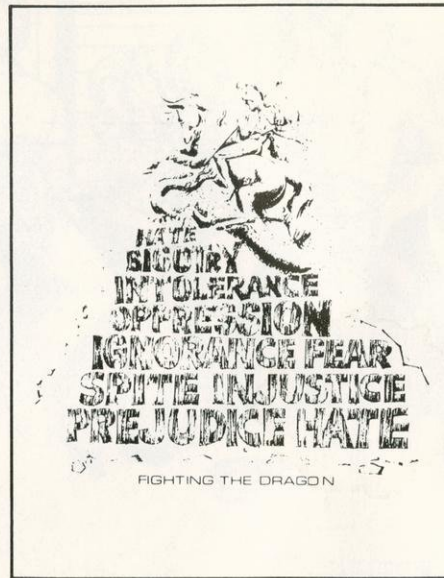 HATE
BIGOTRY
INTOLERANCE
OPPRESSION
IGNORANCE FEAR
SPITE INJUSTICE
PREJUDICE HATE
FIGHTING THE DRAGON